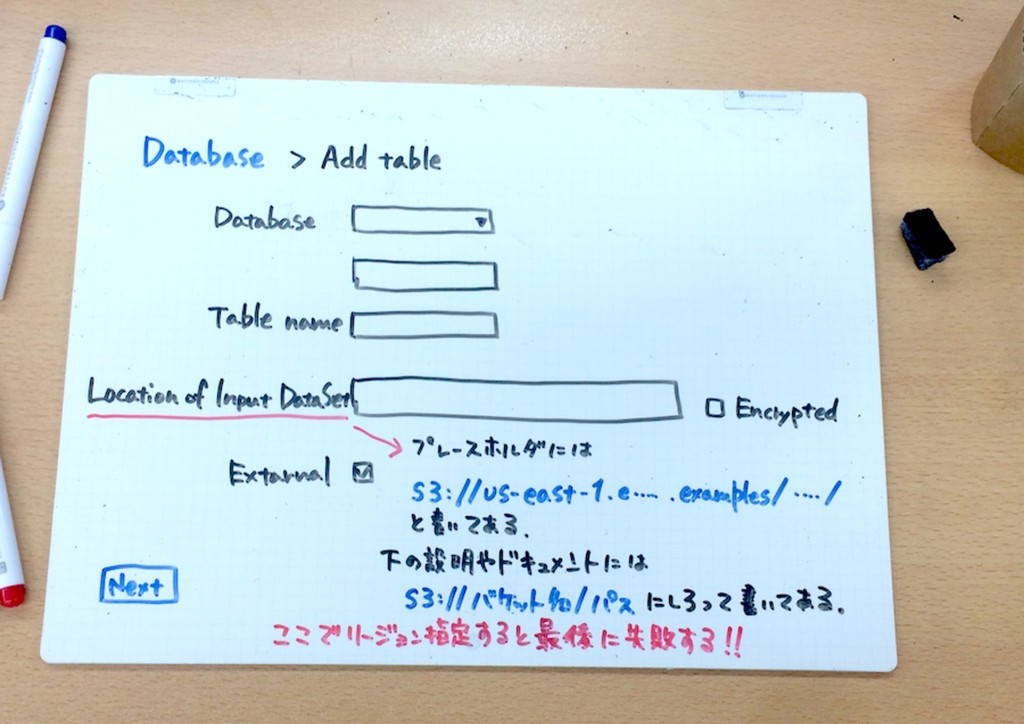 Database > Add table
Database
Table name
Location of Input DataSet
Encrypted
プレースホルダには
Extarnal
S3://us-east-1.e.... .examples/ ..../
と書いてある.
下の説明やドキュメントには
Next
S3://バケット名/パス にしろって書いてある.
ここでリージョン指定すると最後に失敗する!!